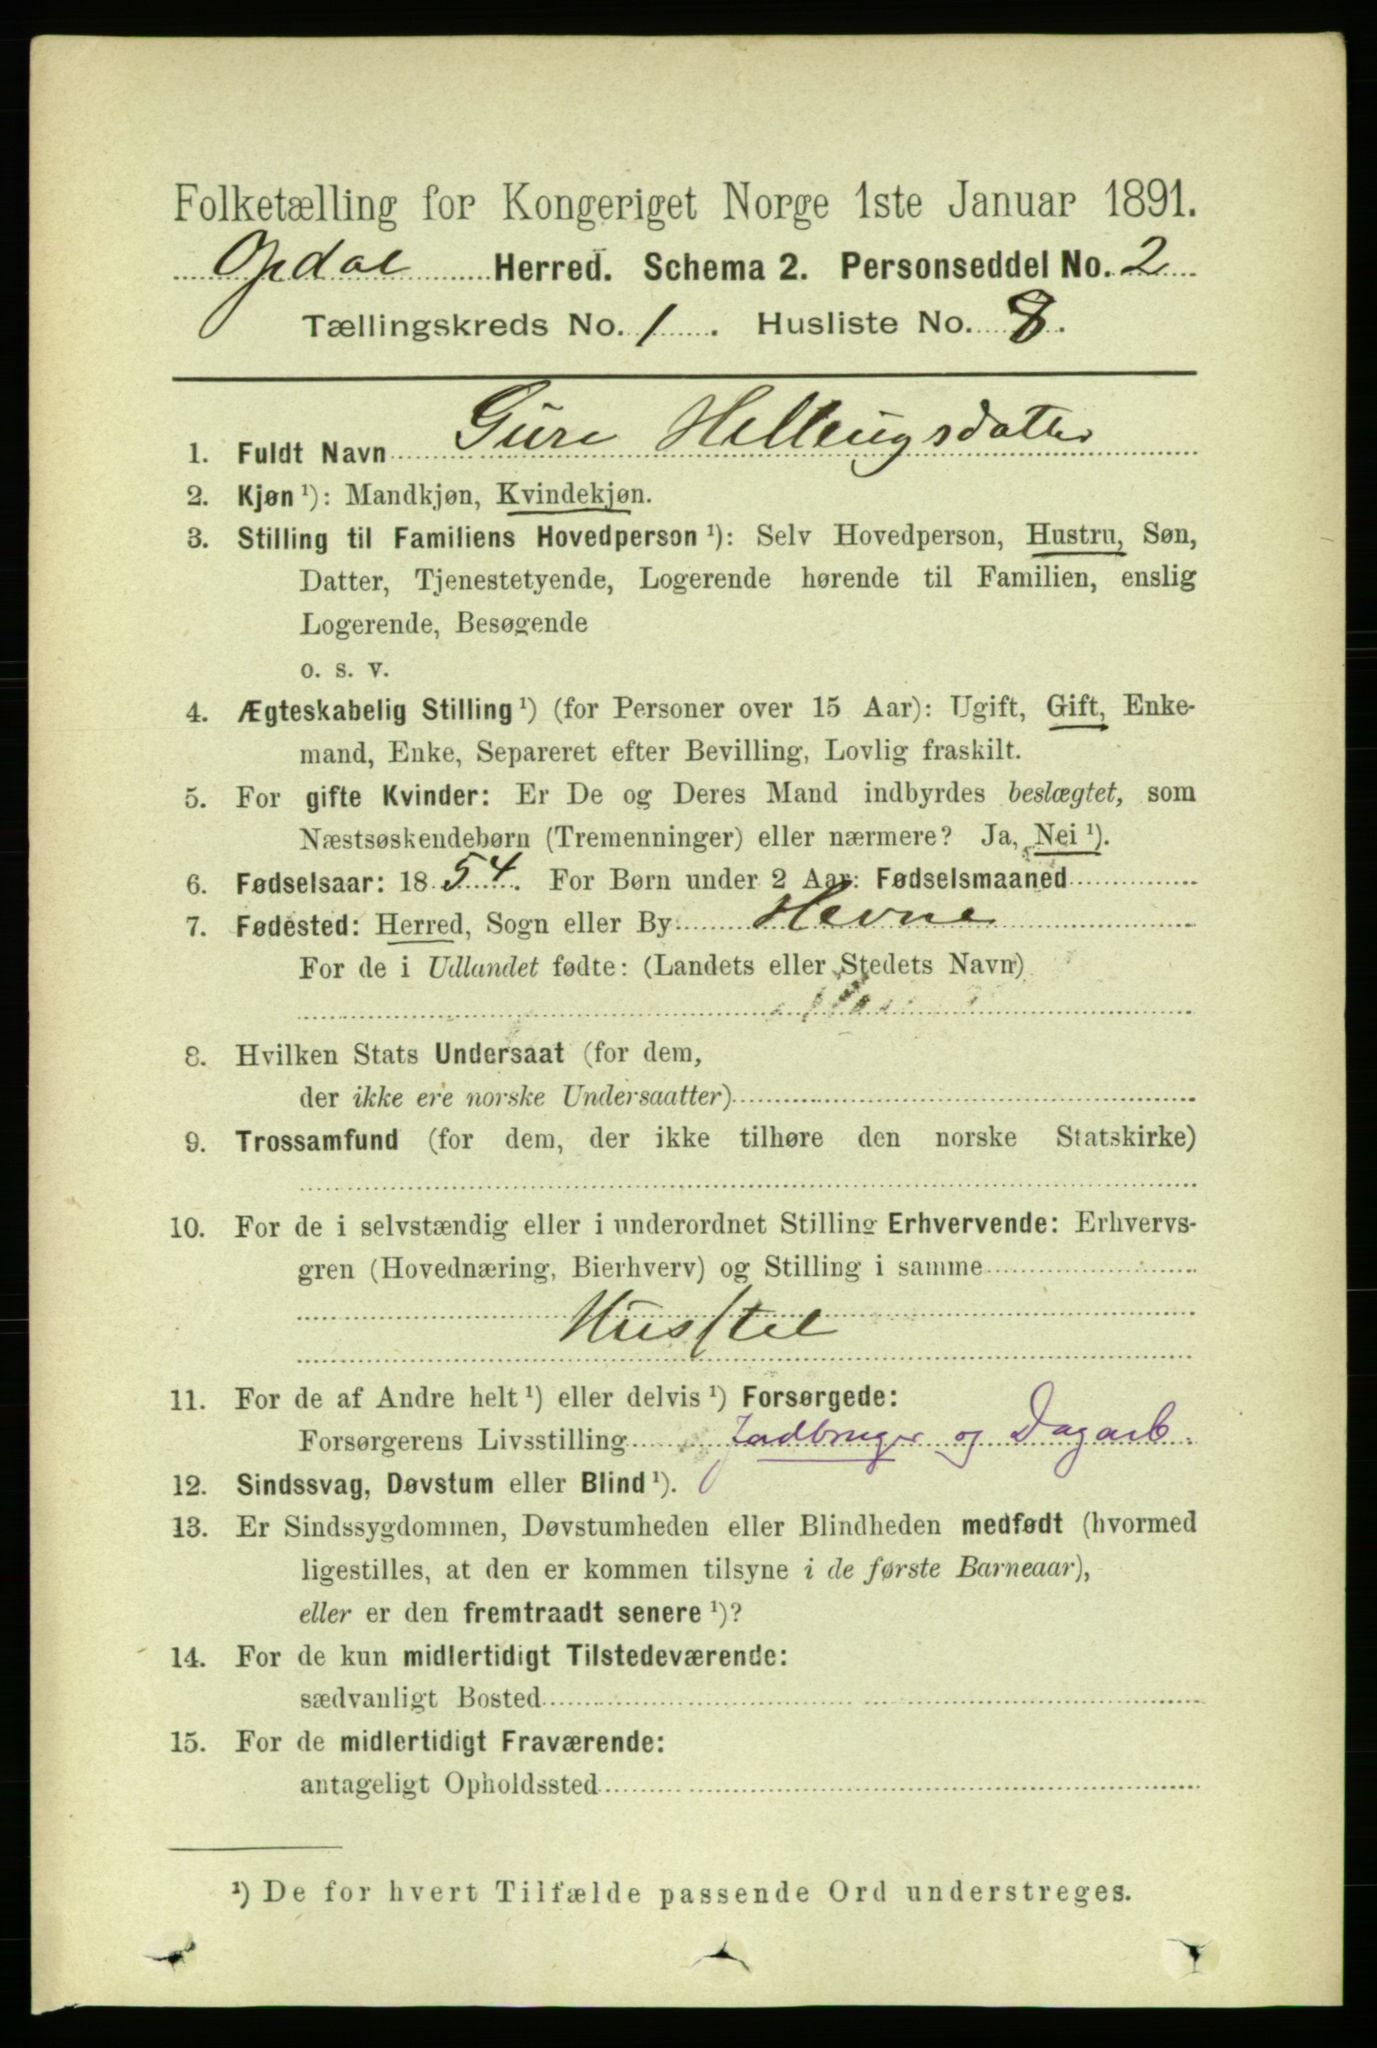 Folketælling for Kongeriget Norge 1ste Januar 1891.
Opdal Herred. Schema 2. Personseddel No. 2
Tællingskreds No. 1. Husliste No. 8.
1. Fuldt Navn Guri Hellingsdatter
2. Kjøn ¹): Mandkjøn, Kvindekjøn.
3. Stilling til Familiens Hovedperson ¹): Selv Hovedperson, Hustru, Søn,
Datter, Tjenestetyende, Logerende hørende til Familien, enslig
Logerende, Besøgende
o. s. v.
4. Ægteskabelig Stilling ¹) (for Personer over 15 Aar): Ugift, Gift, Enke-
mand, Enke, Separeret efter Bevilling, Lovlig fraskilt.
5. For gifte Kvinder: Er De og Deres Mand indbyrdes beslægtet, som
Næstsøskendebørn (Tremenninger) eller nærmere? Ja, Nei ¹).
6. Fødselsaar: 1854. For Børn under 2 Aar: Fødselsmaaned
7. Fødested: Herred, Sogn eller By Hevne
For de i Udlandet fødte: (Landets eller Stedets Navn)
8. Hvilken Stats Undersaat (for dem,
der ikke ere norske Undersaatter)
9. Trossamfund (for dem, der ikke tilhøre den norske Statskirke)
10. For de i selvstændig eller i underordnet Stilling Erhvervende: Erhvervs-
gren (Hovednæring, Bierhverv) og Stilling i samme
Husstel
11. For de af Andre helt ¹) eller delvis ¹) Forsørgede:
Forsørgerens Livsstilling Jordbruger og Dagarb.
12. Sindssvag, Døvstum eller Blind ¹).
13. Er Sindssygdommen, Døvstumheden eller Blindheden medfødt (hvormed
ligestilles, at den er kommen tilsyne i de første Barneaar),
eller er den fremtraadt senere ¹)?
14. For de kun midlertidigt Tilstedeværende:
sædvanligt Bosted
15. For de midlertidigt Fraværende:
antageligt Opholdssted
¹) De for hvert Tilfælde passende Ord understreges.